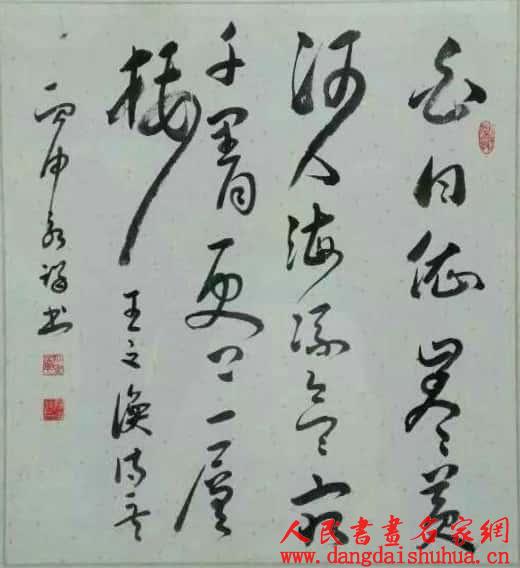 白日依山尽黄
河入海流欲穷
千里目更上一層
楼 王之涣诗一首
丙申永祥书
人民書畫名家網
www.dangdaishuhua.cn